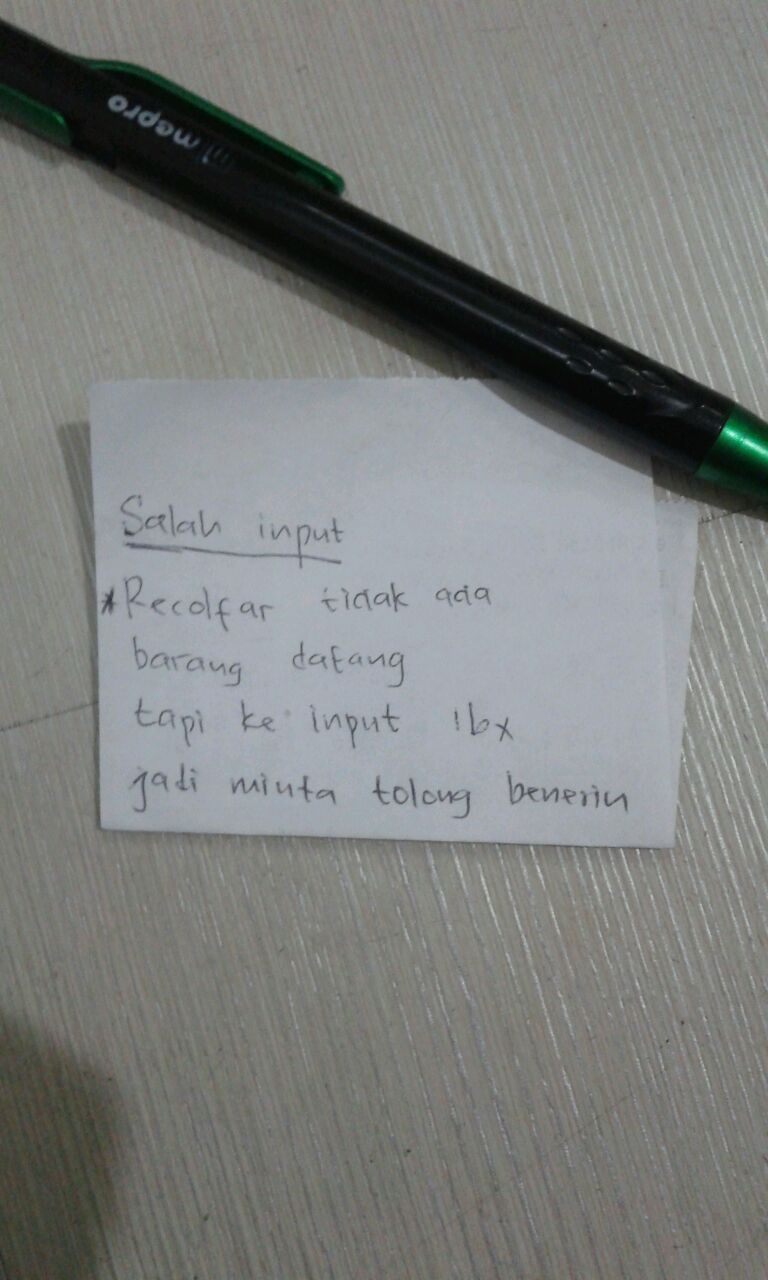 mepro
Salah input
*Recolfar tidak ada
barang datang
tapi ke input 1bx
jadi minta tolong benerin